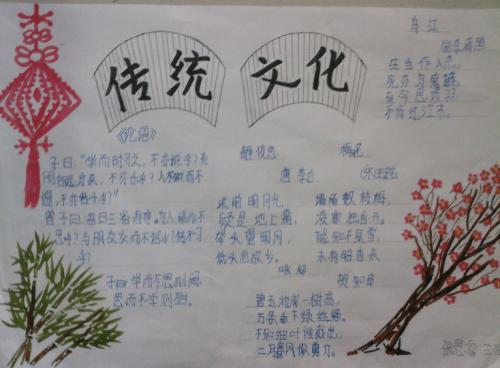 传统
文化
《论语》
子曰:"学而时习之,不亦说乎?有
朋自远方来,不亦乐乎?人不知而不
愠,不亦君子乎?"
曾子曰:每日三省吾身。为人谋而不
忠乎?与朋友交而不信乎?传不习
乎?
子曰:学而不思则罔,
思而不学则殆。
静夜思
唐 李白
床前明月光,
疑是地上霜,
举头望明月,
低头思故乡。
梅花
宋 王安石
墙角数枝梅,
凌寒独自开。
遥知不是雪,
未有暗香来
咏柳
贺知章
碧玉妆成一树高,
万条垂下绿丝绦。
不知细叶谁裁出,
二月春风似剪刀。
乌江
生当作人杰,
死亦为鬼雄。
至今思项羽
不肯过江东。